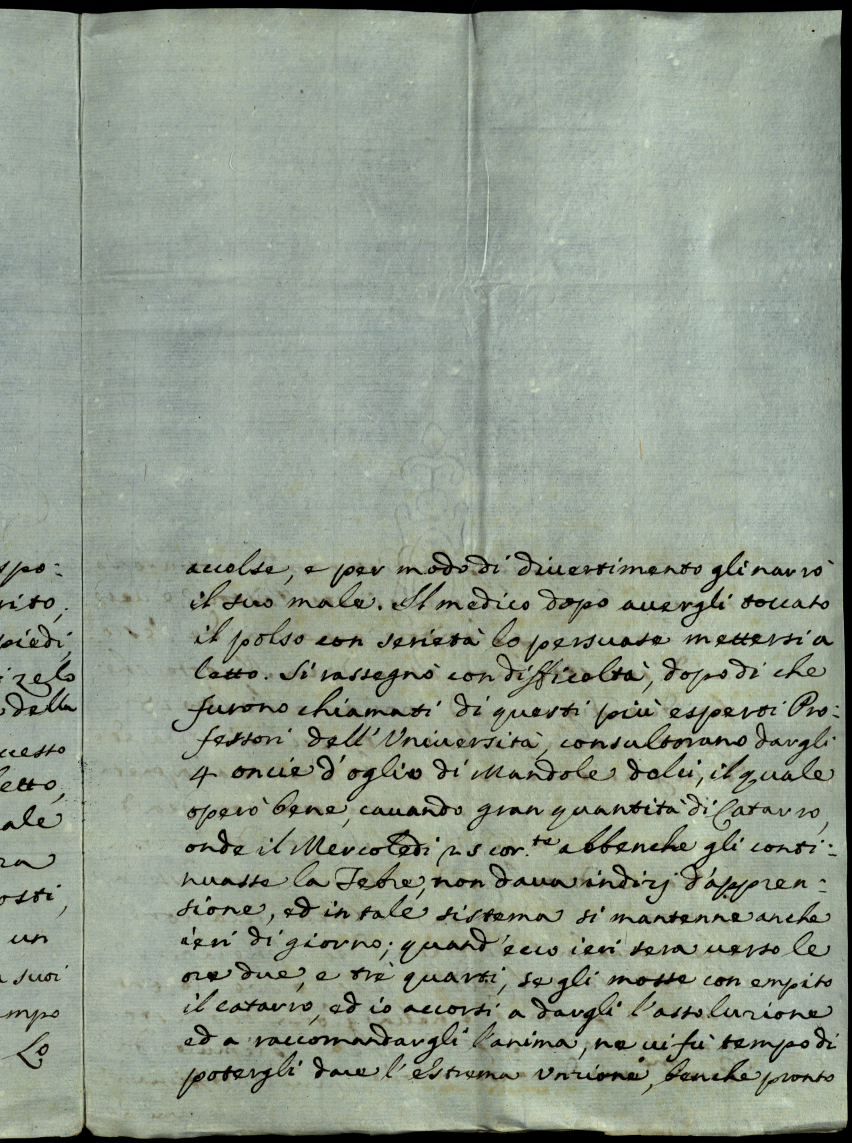 spo:
rito,
piedi,
i zelo
della
uesto
etto,
ale
ra
osti,
un
suoi
mpo
Lo
accolse, e per modo di divertimento gli narrò
il suo male. Il medico dopo avergli toccato
il polso con serietà lo persuase mettersi a
letto. Si rassegnò con difficoltà, dopo di che
furono chiamati di questi più esperti Pro:
fessori dell'Università, consultorano dargli
4 oncie d'oglio di Mandole dolci, il quale
operò bene, cavando gran quantità di Catarro,
onde il Mercoledi 25 cor.te abbenche gli conti:
nuasse la Febre, non dava indizj d'appren:
sione, ed in tale sistema si mantenne anche
ieri di giorno; quand'ecco ieri sera verso le
ore due, e trè quarti, se gli mosse con empito
il catarro, ed io accorsi a dargli l'assoluzione
ed a raccomandargli l'anima, ne vi fù tempo di
potergli dare l'Estrema Unzione, benche pronto